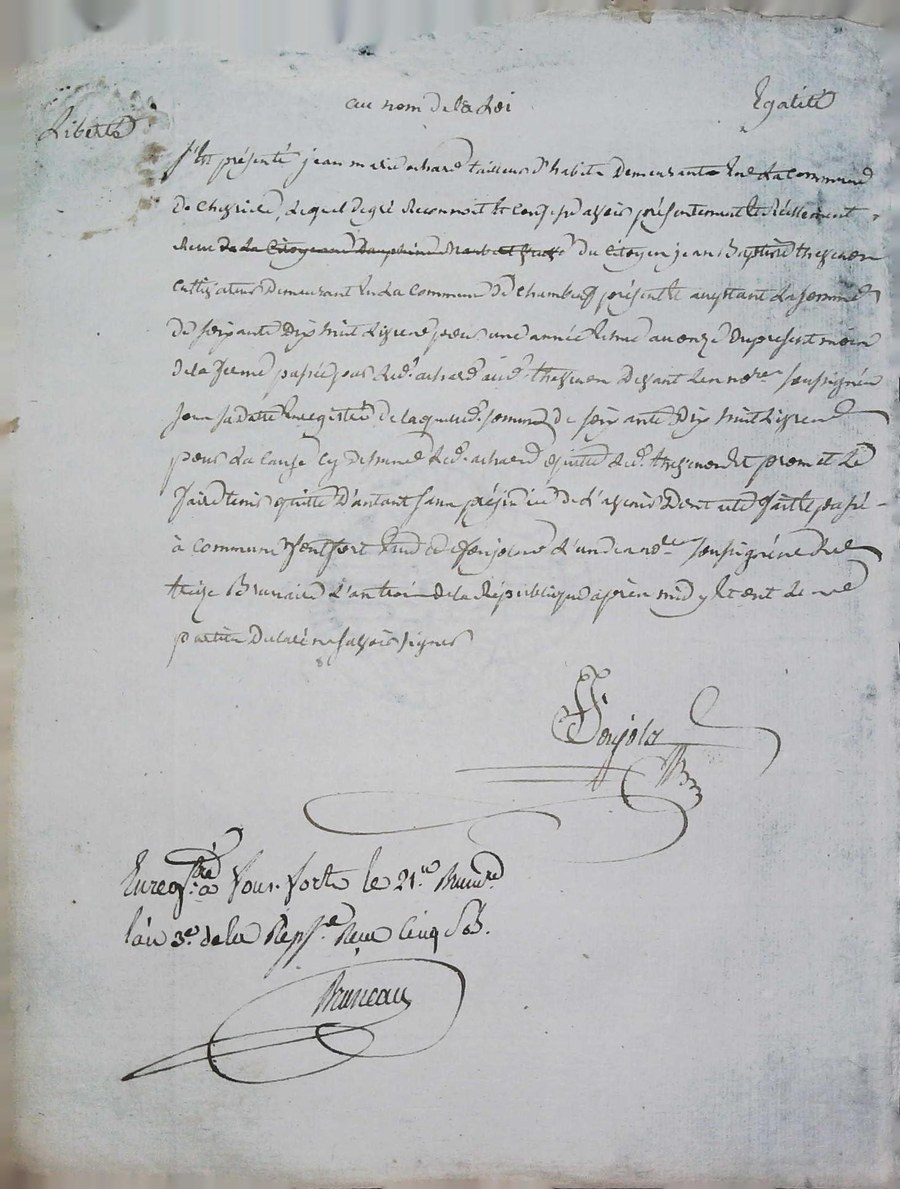 Liberté au nom de la Loi Egalité
S'est présenté jean marie achard tailleur d'habits Demeurant en la Commune
De Cheyrieu, Lequel De gré Reconnoit et Confesse avoir présentement et Réellement
Reçu de La Citoyenne Dauphine du Citoyen jean Baptiste theyenon
Cultivateur Demeurant en La Commune De Chambeuf présent et acceptant La somme
De soixante Dix huit Livres pour une année Echue au onze du present mois
de la ferme passée par Led. achard aud. theyenon Devant Le nore soussigné
sous sa Date enregistrée de laquelle somme de soixante Dix huit Livres
pour La Cause Cy Dessus Led. achard quitte Led. theyenon et promet Le
faire tenir quitte D'autant sans préjudice de L'avenir Dont acte fait et passé
à Commune fontfort Etude de Sonjolas L'un des nores soussigné ce
treize Brumaire L'an trois de la République après midy et ont Les
parties Déclaré ne savoir signer
Sonjolas
Enregtré à font-forte le 21.e Brumre
l'an 3.e de la Rep.e Reçu Cinq Sols.
Bruneau